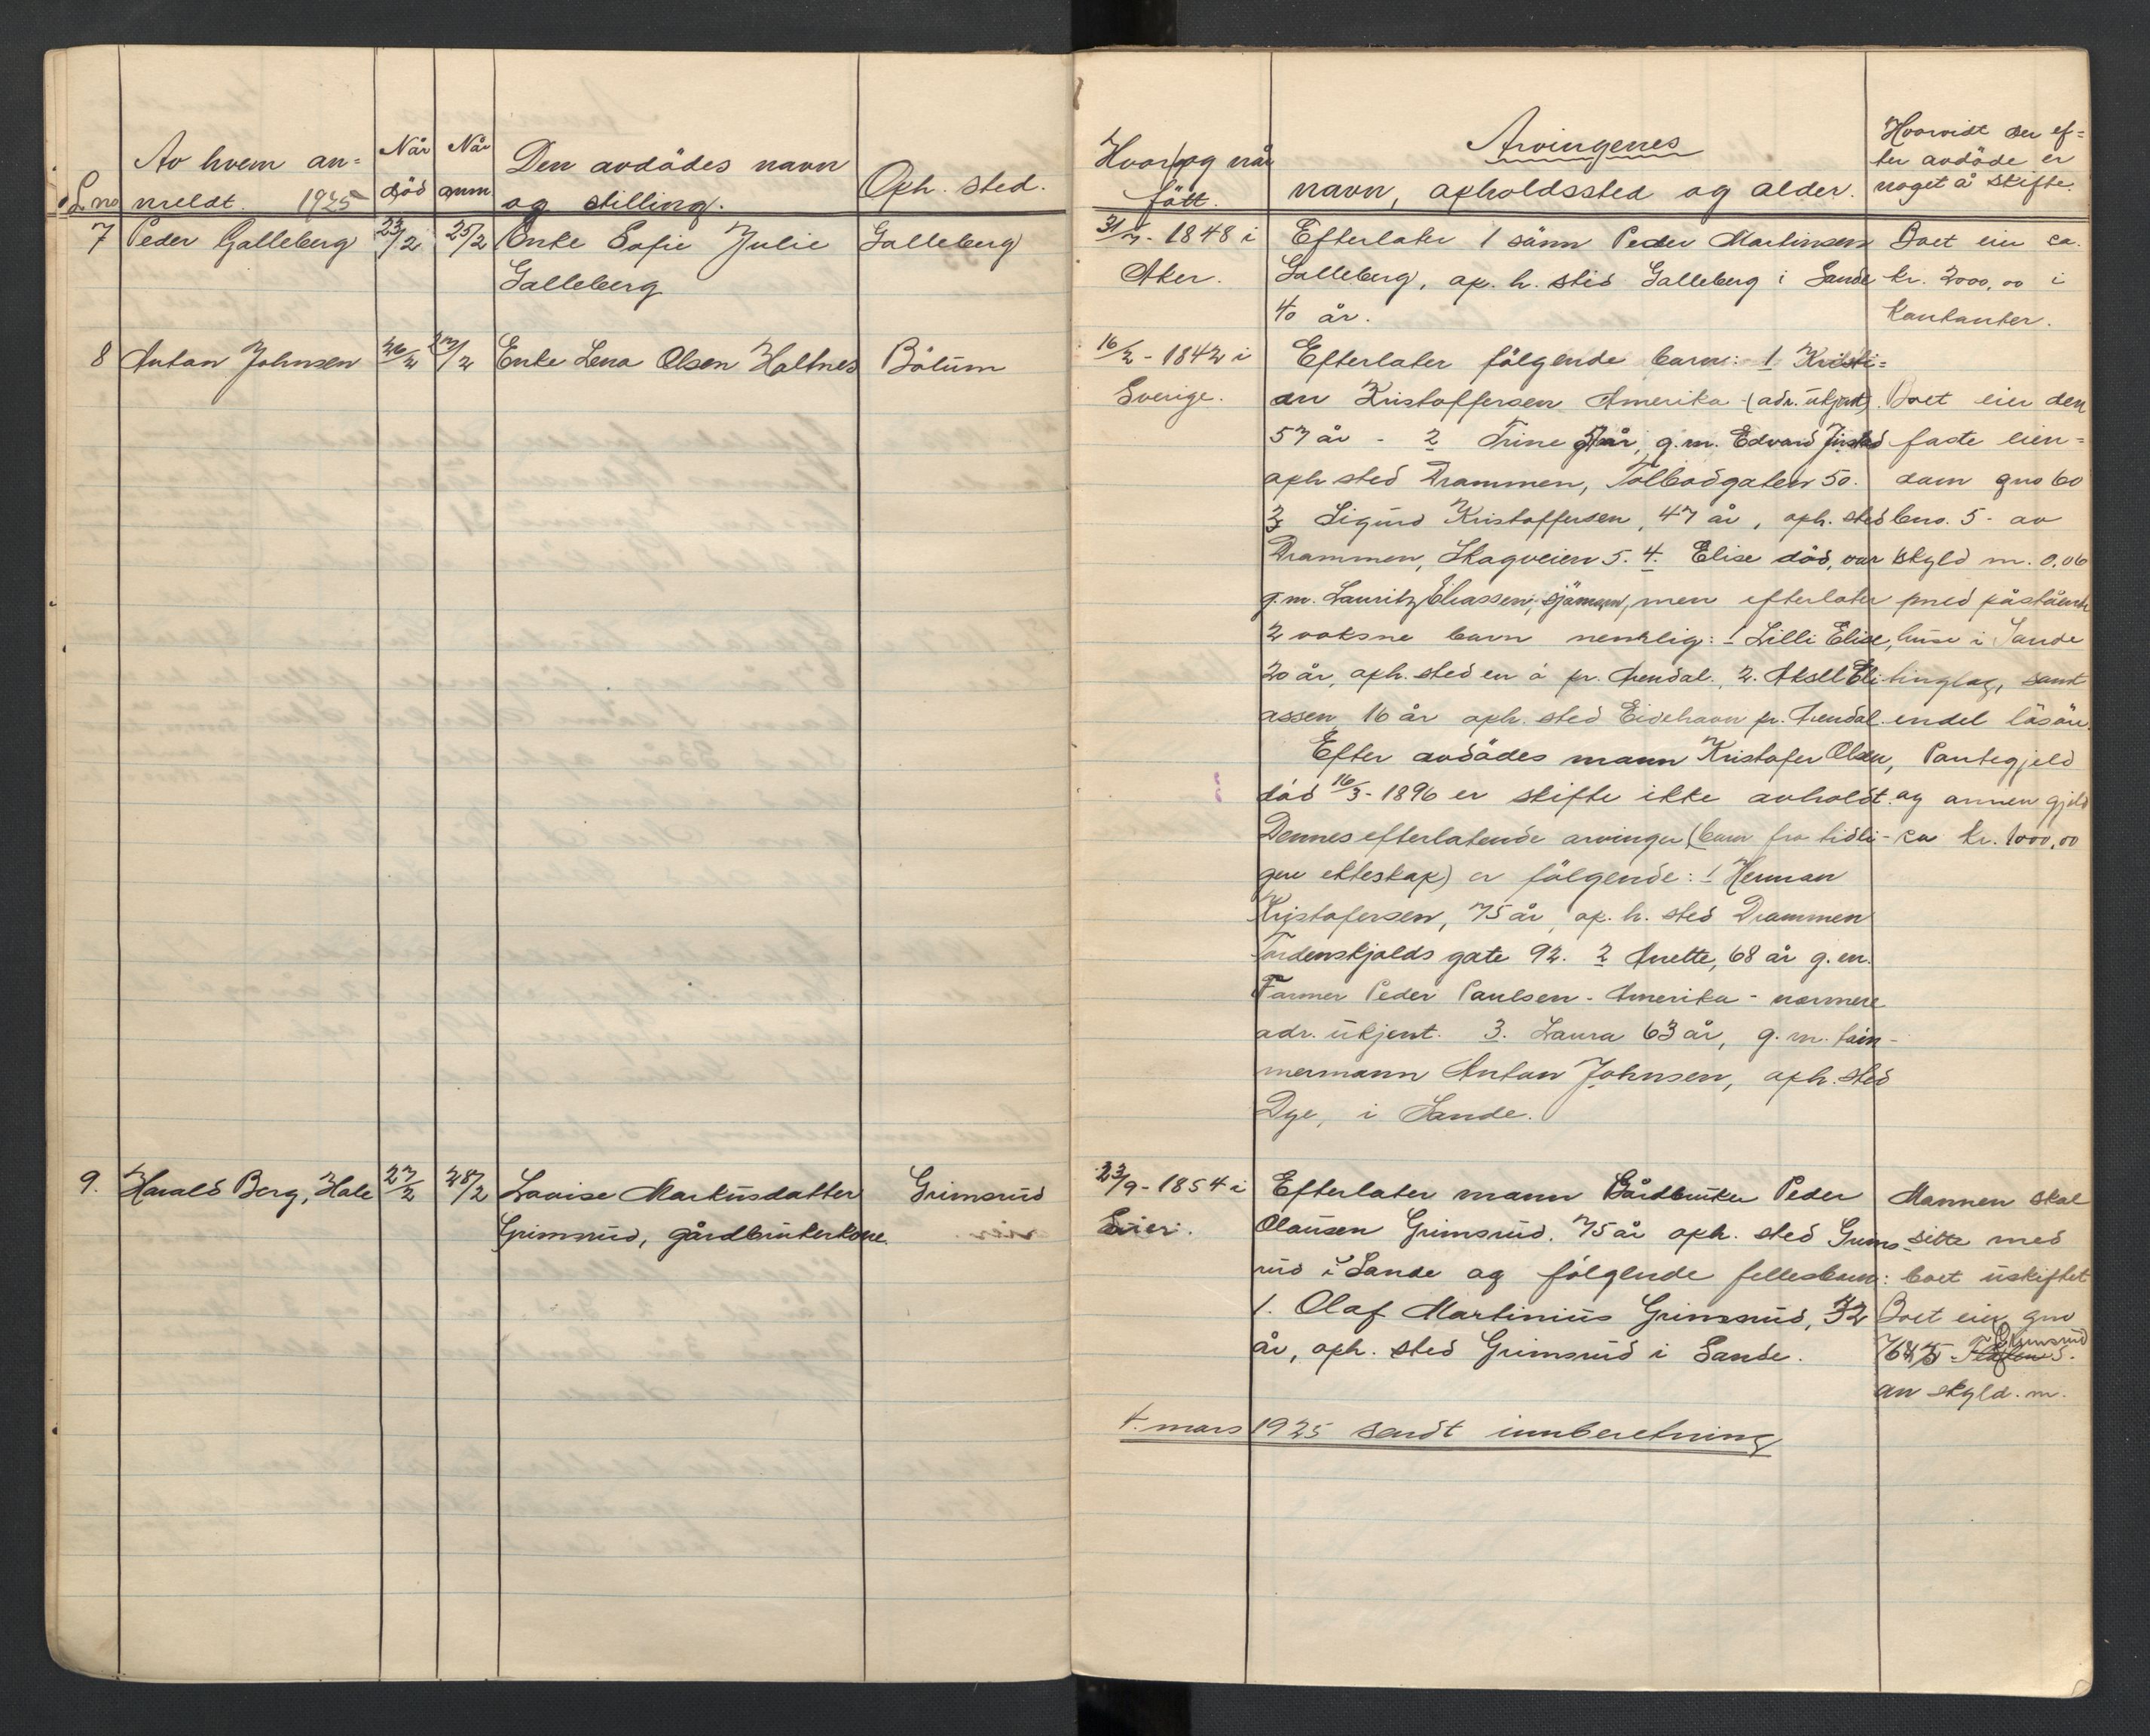 L.no
Av hvem an=
meldt. 1925
Når
död
Når
anm
Den avdödes navn
og stilling.
Oph. sted.
7 Peder Galleberg 23/2 25/2 Enke Sofie Julie Galleberg
Galleberg
8 Anton Johnsen 26/2 27/2 Enke Lena Olsen Holtnes Bölum
9. Harald Berg, Hole 27/2 28/2 Lovise Markusdatter Grimsrud
Grimsrud, gårdbrukerkone
Hvor og når
født.
Arvingenes
navn, opholdssted og alder.
Hvorvidt der ef=
ter avdöde er
noget å skifte.
31/7 - 1848 i
Aker.
Efterlater 1 sönn Peder Martinsen
Galleberg, op. h. sted Galleberg i Sande
40 år.
Boet eier ca.
kr. 2000,00 i
kontanter.
16/2 - 1842 i
Sverige.
Efterlater fölgende barn: 1 Kristi=
an Kristoffersen Amerika (adr. ukjent).
57 år - 2 Trine år, g.m. Edvard
oph sted Drammen, Tolbodgaten 50.
3 Sigurd Kristoffersen, 47 år, oph. sted
Drammen, Skogveien 5. 4. Elise död, var
g.m. Lauritz Eliassen, sjömann, men efterlater
2 voksne barn nemlig: 1 Lilli Elise,
20 år, oph. sted pr. Arendal. 2. Aksel Eli
assen 16 år oph. sted Eidehavn pr. Arendal.
Efter avdödes mann Kristofer Olsen,
död 16/3 - 1896 er skifte ikke avholdt.
Dennes efterlatende arvinger (barn fra tidli-
gere ekteskap) er fölgende: 1 Herman
Kristofersen, 75 år, op. h. sted Drammen
Tordenskjolds gate 92. 2 Anette, 68 år g.m.
Farmer Peder Paulsen - Amerika - nærmere
adr. ukjent. 3. Laura 63 år, g. m. töm-
mermann Anton Johnsen, oph. sted
Dye, i Sande.
Boet eier den
faste eien=
dom gno 60
bno. 5 - av
skyld m. 0,06
med påstående
huse i Sande
tinglag, samt
endel lösöre.
Pantegjeld
og annen gjeld
ca kr. 1000,00
23/9 - 1854 i
Eier.
Efterlater mann Gårdbruker Peder
Olausen Grimsrud. 75 år oph. sted Grims-
rud i Sande og fölgende fellesbarn:
1. Olaf Martinius Grimsrud, 32
år, oph. sted Grimsrud i Sande.
Mannen skal
sitte med
boet uskiftet
Boet eier gno
Grimsrud
av skyld. m.
4. mars 1925 sendt innberetning